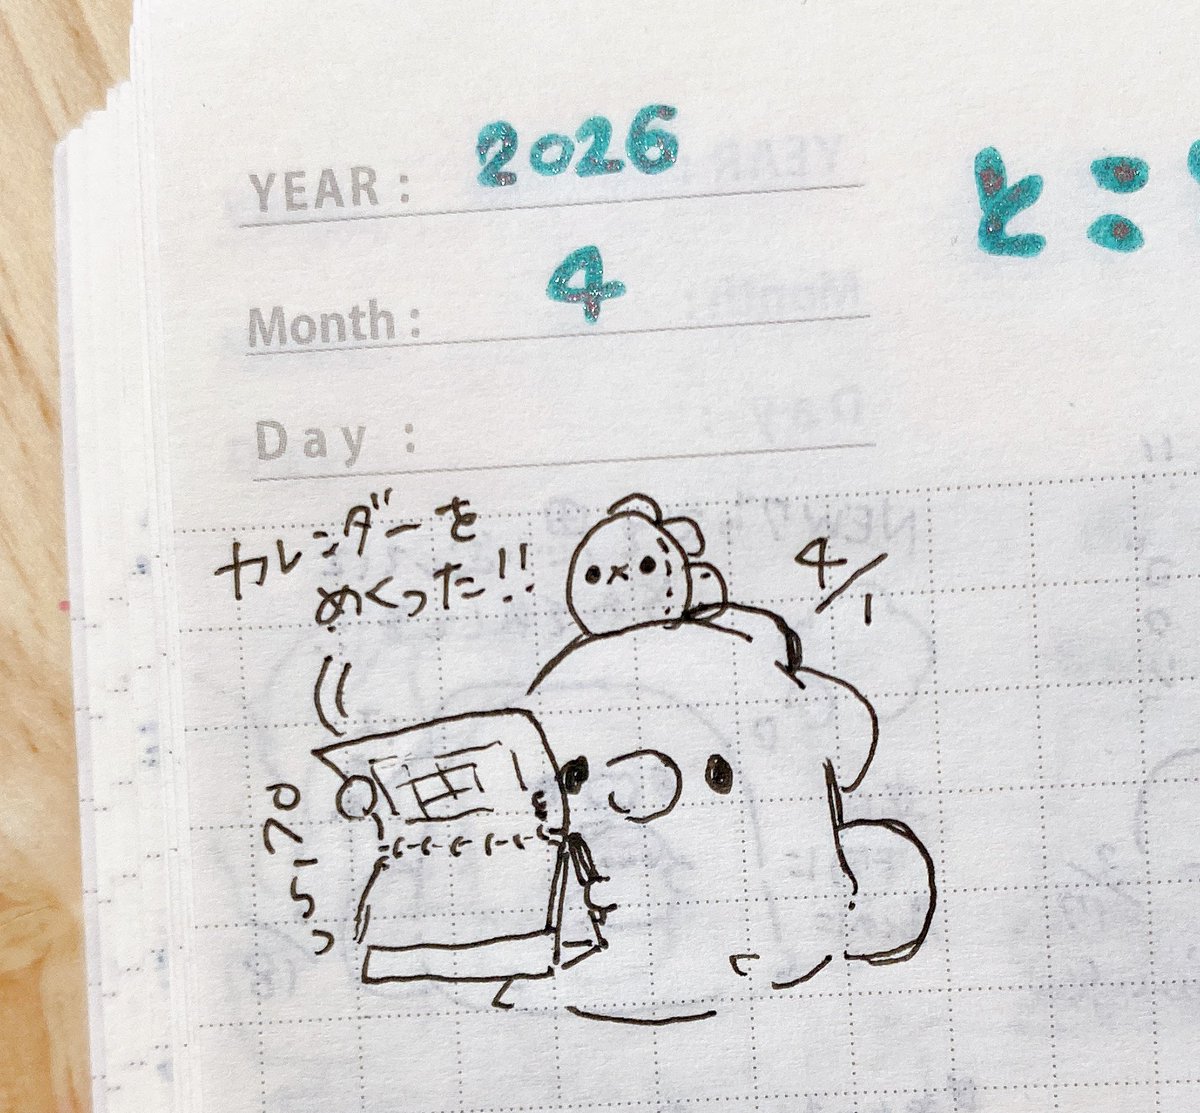 YEAR : 2026
と:
Month : 4
Day :
カレンダーを
めくった!!
4/1